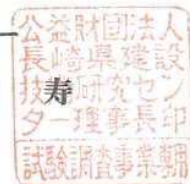 公益財団法人
長崎県建設
技研究セン
ター理事長印
試験調査事業専用
寿